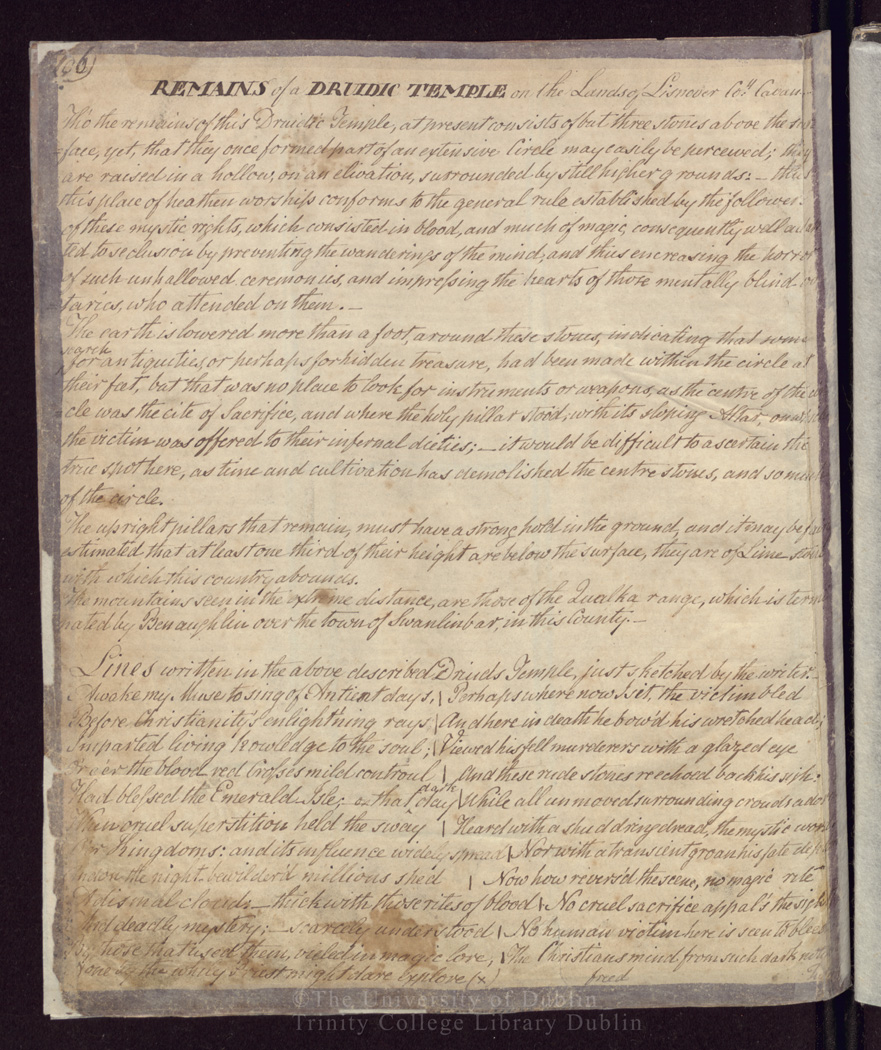 (66)
REMAINS of a DRUIDIC TEMPLE on the Lands of Lisnover Coy. Cavan—
Tho the remains of this Druidic Temple, at present consists of but three stones above the sur
=face, yet, that they once formed part of an extensive Circle may easily be perceived; they
are raised in a hollow, on an elivation, surrounded by still higher grounds:— thus
this place of heathen worship conforms to the general rule established by the follower
of these mystic rights, which consisted in blood, and much of magic, consequently well adap
ted to seclusion by preventing the wanderings of the mind, and thus encreasing the horror
of such unhallowed ceremonies, and impressing the hearts of those mentally blind vo
taries, who attended on them.—
The earth is lowered more than a foot, around these stones, indicating that some
search
for antiquities, or perhaps for hidden treasure, had been made within the circle at
their feet, but that was no place to look for instruments or weapons, as the centre of the cir
cle was the cite of Sacrifice, and where the holy pillar stood, with its sloping Altar, on
the victim was offered to their infernal dieties;— it would be difficult to ascertain the
true spot here, as time and cultivation has demolished the centre stones, and so much
of the circle.
The upright pillars that remain, must have a strong hold in the ground, and it may be
estimated that at least one third of their height are below the surface, they are of Lime-stone
with which this country abounds.
The mountains seen in the extreme distance, are those of the Quilka range, which is termi
nated by Benaughlin over the town of Swanlinbar, in this County.—
Lines written in the above described Druids Temple, just sketched by the writer—
Awake my Muse to sing of Antient days,
Before Christianity's enlightning rays
Imparted living knowledge to the soul;
Or e'er the blood red Crosses mild controul
Had blessed the Emerald Isle; on that dark day
When cruel superstition held the sway
For Kingdoms: and its influence widely spread
Under the night, bewilder'd millions shed
dismal clouds— thick with those rites of blood
And deadly mystery;— scarcely understood
By those that used them, vieled in magic lore,
None but the whiny Priest might dare explore (x)
Perhaps where now I sit, the victim bled
And here in death he bow'd his wretched head;
Viewed his fell murderers with a glazed eye
And these rude stones reechoed back his sigh:
While all unmoved surrounding crouds ador
Heard with a shuddring dread, the mystic word
Nor with a transient groan his fate
Now how revers'd the scene, no magic rite
No cruel sacrifice appal's the sight
No human victim here is seen to bleed
The Christians mind, from such dark
freed
©The University of Dublin
Trinity College Library Dublin